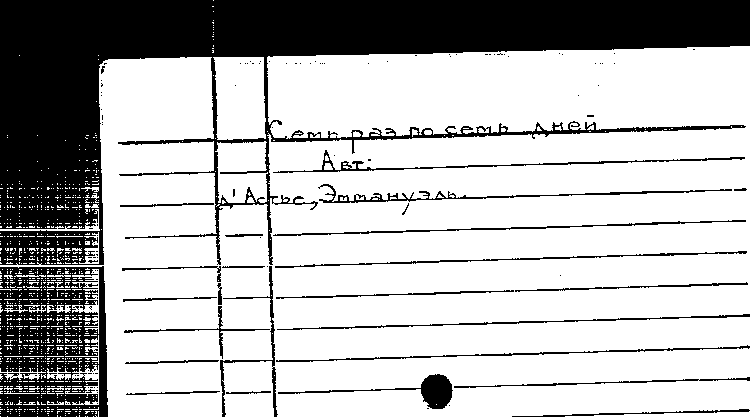 Семь раз по семь дней
Авт:
д'Астье, Эммануэль.